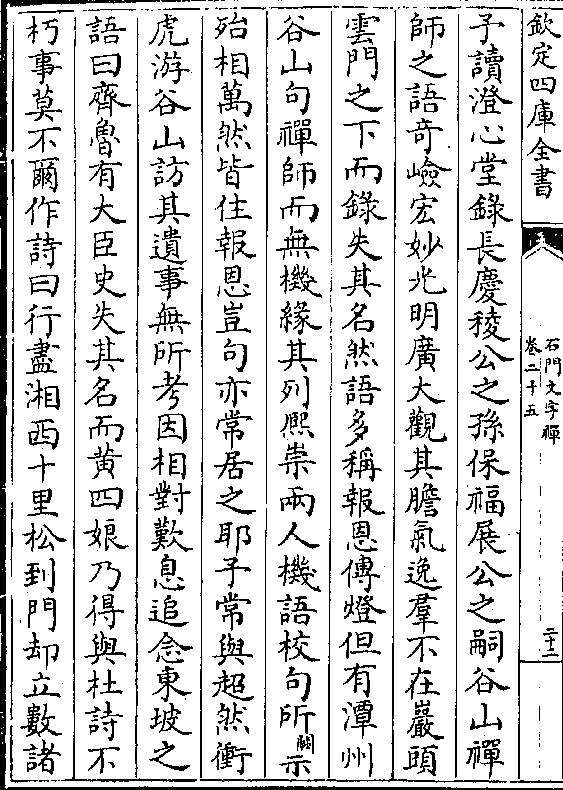 欽定四庫全書
石門文字禪
卷二十五
二十二
予讀澄心堂錄長慶稜公之孫保福展公之嗣谷山禪
師之語奇嶮宏妙光明廣大觀其膽氣逸羣不在巖頭
雲門之下而錄失其名然語多稱報恩傳燈但有潭州
谷山句禪師而無機緣其列熈崇兩人機語校句所闕示
殆相萬然皆住報恩豈句亦常居之耶予常與超然衝
虎游谷山訪其遺事無所考因相對歎息追念東坡之
語曰齊魯有大臣史失其名而黄四娘乃得與杜詩不
朽事莫不爾作詩曰行盡湘西十里松到門却立數諸